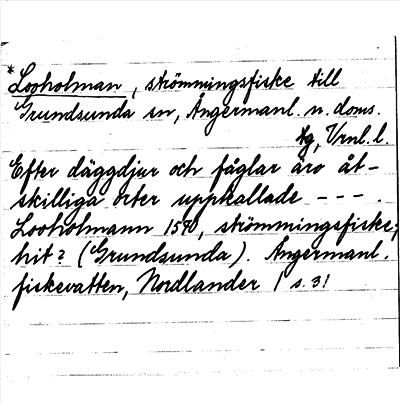 *Looholman, strömmingsfiske till
Grundsunda sn, Ångermanl. n. doms.
tg, Vrnl. l.
Efter däggdjur och fåglar äro åt-
skilliga orter uppkallade - - - .
Looholmann 1590, strömmingsfiske,
hit? (Grundsunda). Ångermanl.
fiskevatten, Nordlander / s. 31